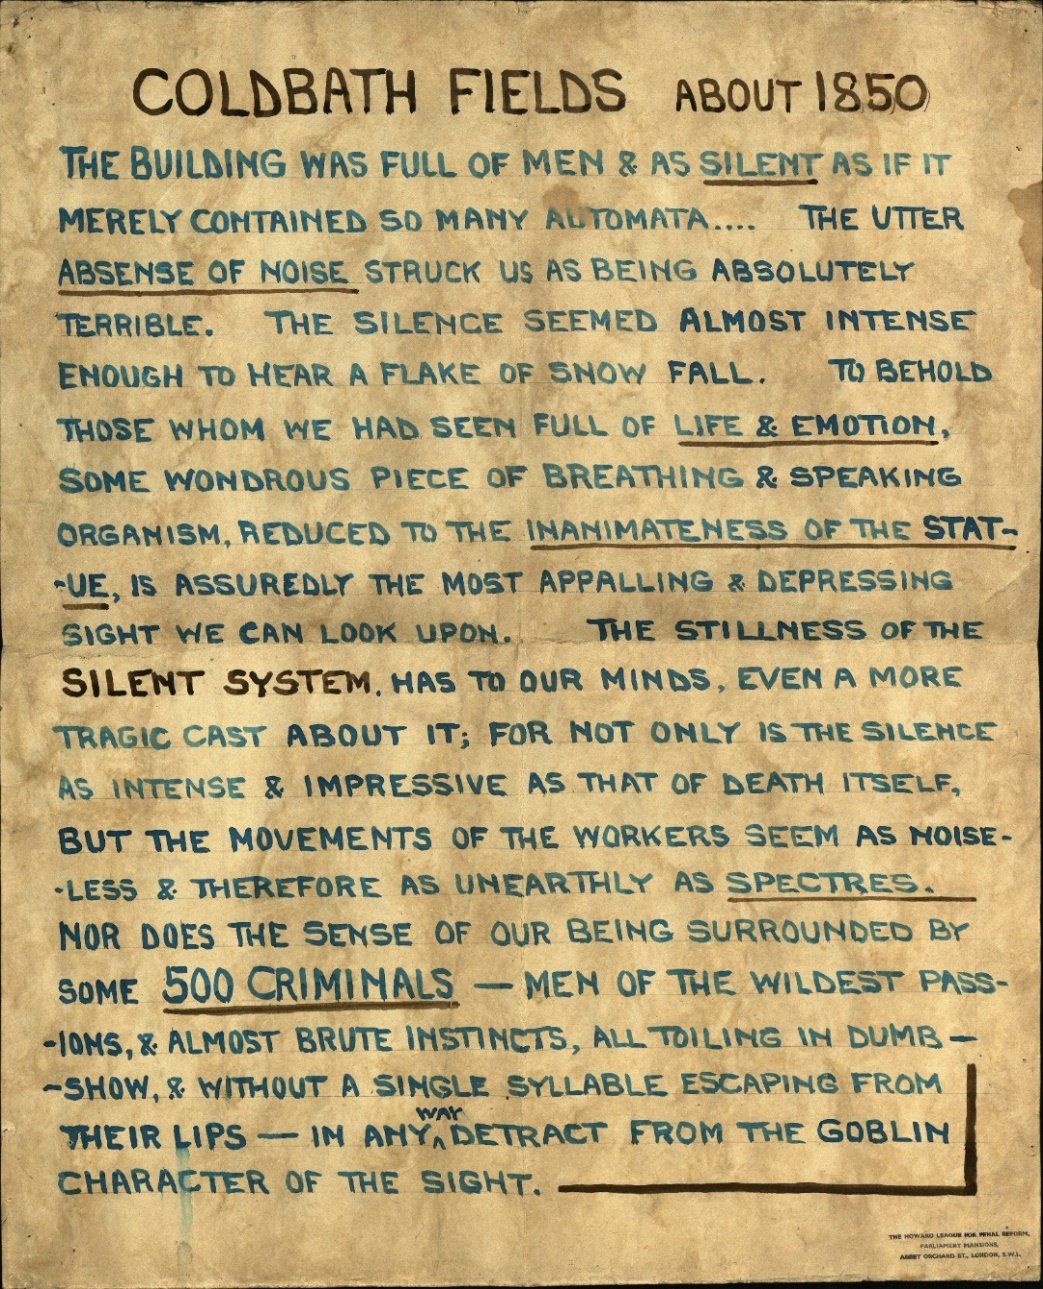 COLDBATH FIELDS ABOUT 1850
THE BUILDING WAS FULL OF MEN & AS SILENT AS IF IT
MERELY CONTAINED SO MANY AUTOMATA.... THE UTTER
ABSENSE OF NOISE STRUCK US AS BEING ABSOLUTELY
TERRIBLE. THE SILENCE SEEMED ALMOST INTENSE
ENOUGH TO HEAR A FLAKE OF SNOW FALL. TO BEHOLD
THOSE WHOM WE HAD SEEN FULL OF LIFE & EMOTION,
SOME WONDROUS PIECE OF BREATHING & SPEAKING
ORGANISM, REDUCED TO THE INANIMATENESS OF THE STAT-
-UE, IS ASSUREDLY THE MOST APPALLING & DEPRESSING
SIGHT WE CAN LOOK UPON. THE STILLNESS OF THE
SILENT SYSTEM. HAS TO OUR MINDS, EVEN A MORE
TRAGIC CAST ABOUT IT; FOR NOT ONLY IS THE SILENCE
AS INTENSE & IMPRESSIVE AS THAT OF DEATH ITSELF,
BUT THE MOVEMENTS OF THE WORKERS SEEM AS NOISE-
-LESS & THEREFORE AS UNEARTHLY AS SPECTRES.
NOR DOES THE SENSE OF OUR BEING SURROUNDED BY
SOME 500 CRIMINALS — MEN OF THE WILDEST PASS-
-IONS, & ALMOST BRUTE INSTINCTS, ALL TOILING IN DUMB —
-SHOW, & WITHOUT A SINGLE SYLLABLE ESCAPING FROM
THEIR LIPS — IN ANY WAY DETRACT FROM THE GOBLIN
CHARACTER OF THE SIGHT.
THE HOWARD LEAGUE FOR PENAL REFORM,
PARLIAMENT MANSIONS,
ABBEY ORCHARD ST., LONDON, S.W.1.